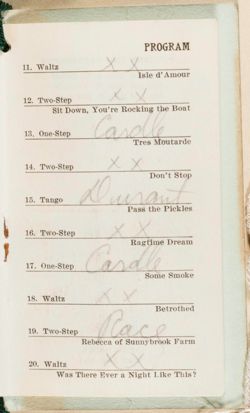 PROGRAM
11. Waltz X X
Isle d'Amour
12. Two-Step X X
Sit Down, You're Rocking the Boat
13. One-Step Cardle
Tres Moutarde
14. Two-Step X X
Don't Stop
15. Tango Durant
Pass the Pickles
16. Two-Step X X
Ragtime Dream
17. One-Step Cardle
Some Smoke
18. Waltz X X
Betrothed
19. Two-Step Race
Rebecca of Sunnybrook Farm
20. Waltz X X
Was There Ever a Night Like This?